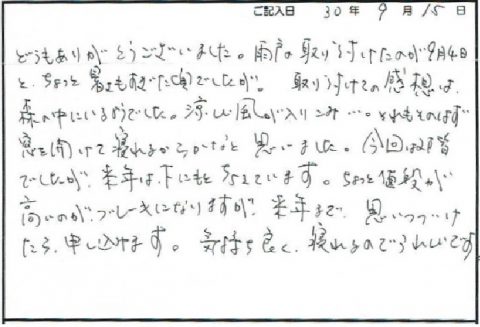 ご記入日 30年 9月 15日
どうもありがとうございました。雨戸の取り付けたのが9月4日
と、ちょっと暑さもすぎた頃でしたが。 取り付けての感想は、
森の中にいるようでした。涼しい風が入りこみ…。それもそのはず
窓を開けて寝れるからかなと思いました。今回は2階
でしたが、来年は下にもと考えています。ちょっと値段が
高いのが、ブレーキになりますが、来年まで、思いつづけ
たら、申し込けます。 気持ち良く、寝れるのでうれしいです